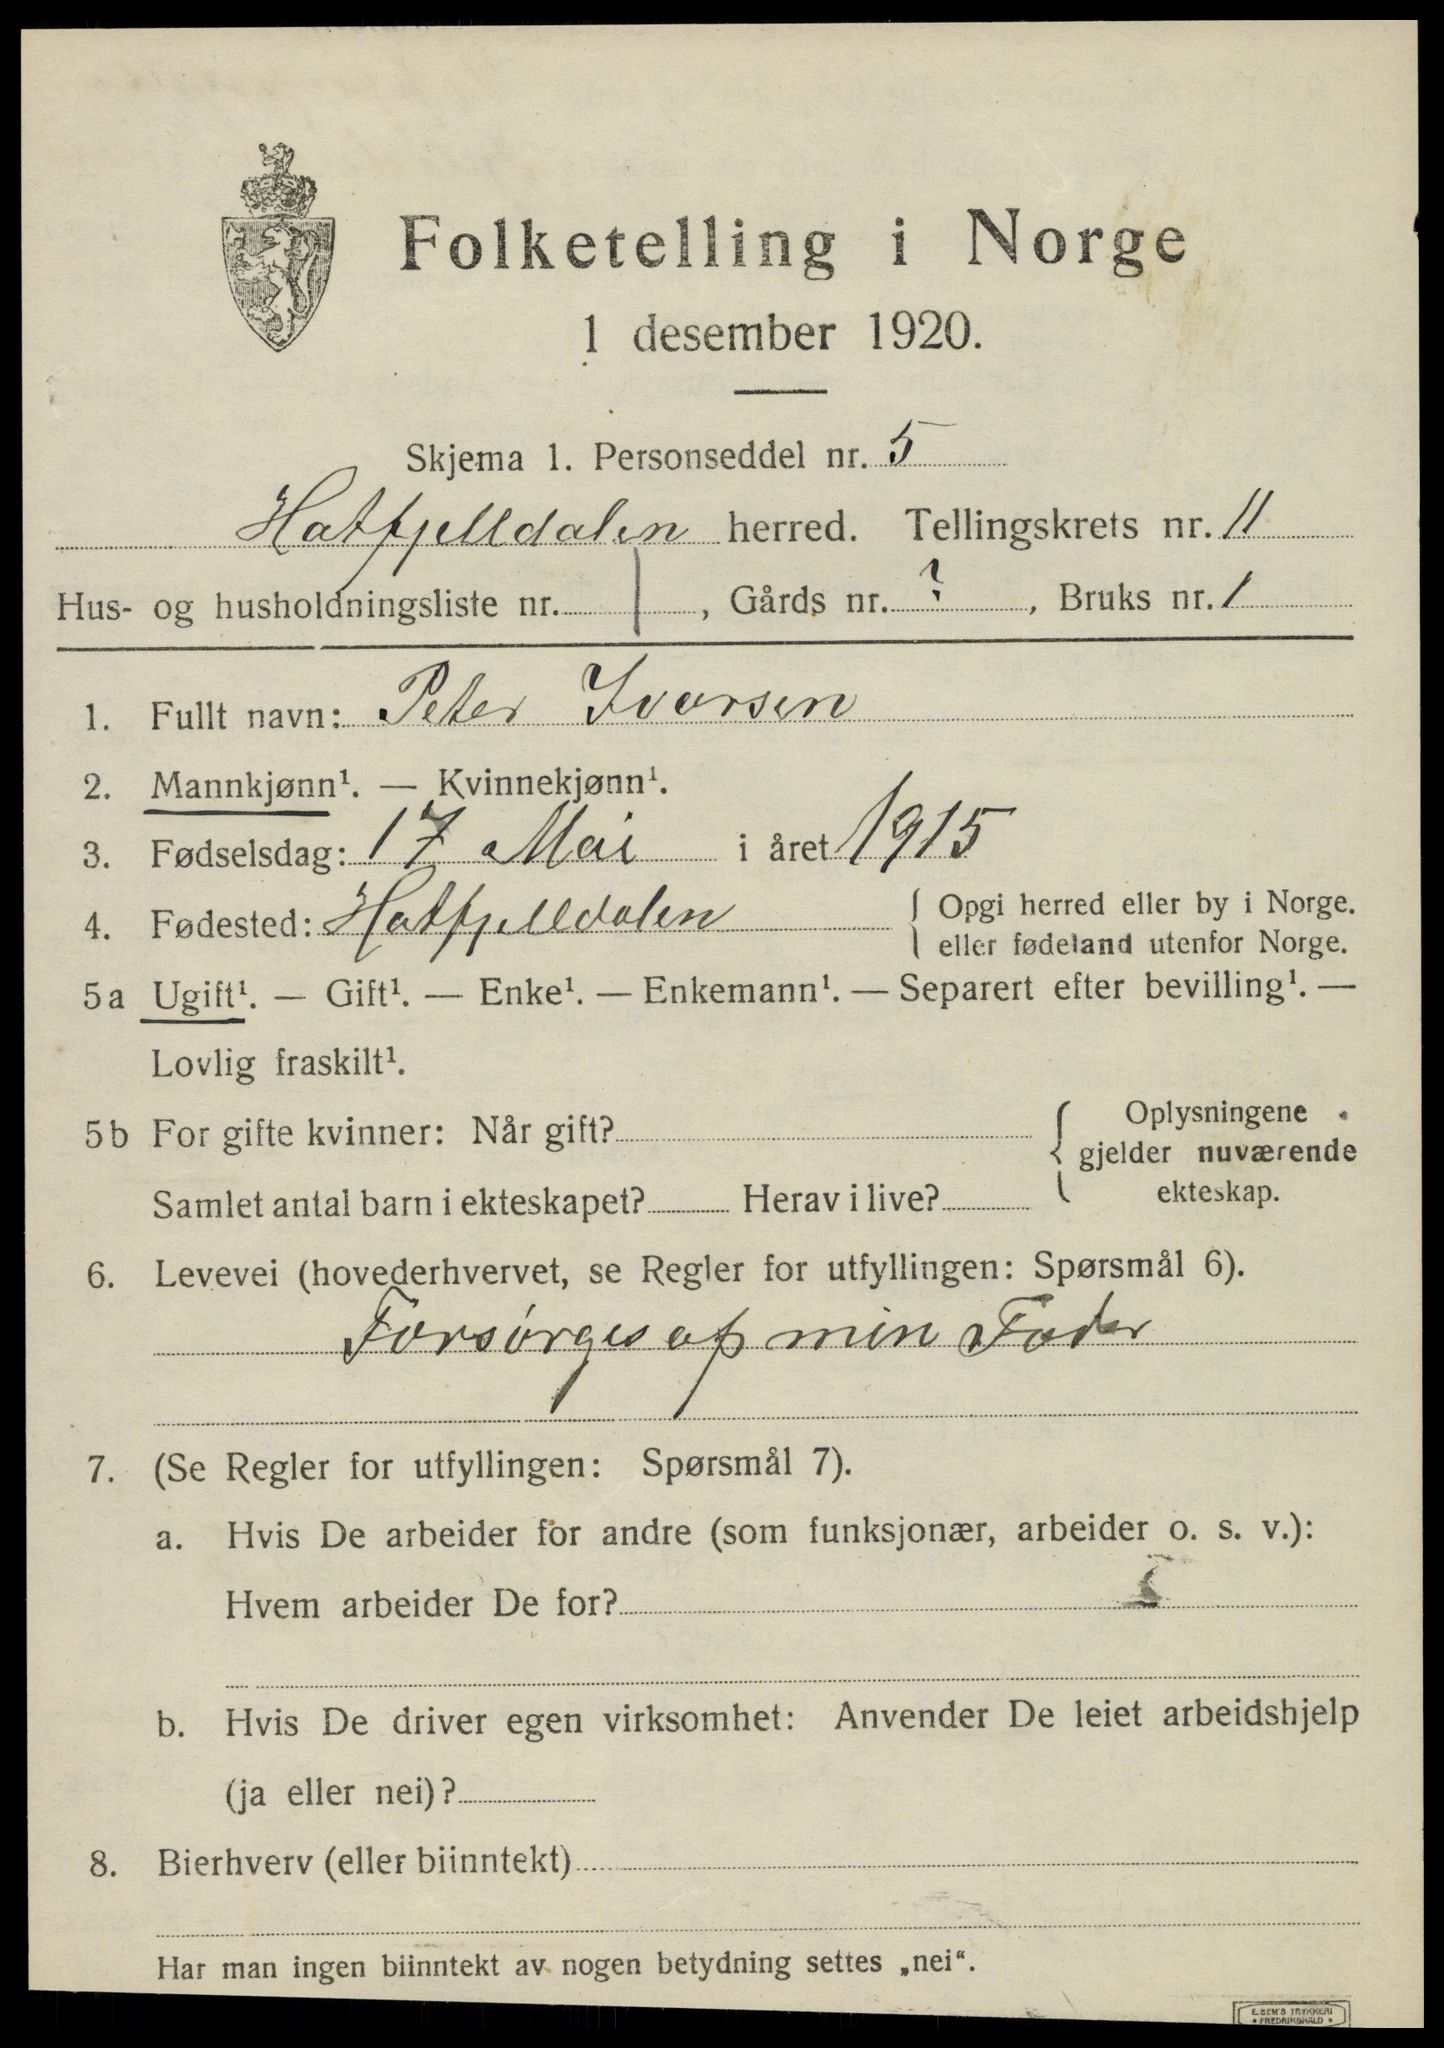 Folketelling i Norge
1 desember 1920.
Skjema 1. Personseddel nr. 5
Hatfjelldalen herred. Tellingskrets nr. 11
Hus- og husholdningsliste nr. 1, Gårds nr. ?, Bruks nr. 1
1. Fullt navn: Peter Ivarsen
2. Mannkjønn¹. — Kvinnekjønn¹.
3. Fødselsdag: 17 Mai i året 1915
4. Fødested: Hatfjelldalen { Opgi herred eller by i Norge.
eller fødeland utenfor Norge.
5a Ugift¹. — Gift¹. — Enke¹. — Enkemann¹. — Separert efter bevilling¹. —
Lovlig fraskilt¹.
5b For gifte kvinner: Når gift? { Oplysningene
gjelder nuværende
ekteskap.
Samlet antal barn i ekteskapet? Herav i live?
6. Levevei (hovederhvervet, se Regler for utfyllingen: Spørsmål 6).
Forsørges af min Fader
7. (Se Regler for utfyllingen: Spørsmål 7).
a. Hvis De arbeider for andre (som funksjonær, arbeider o. s. v.):
Hvem arbeider De for?
b. Hvis De driver egen virksomhet: Anvender De leiet arbeidshjelp
(ja eller nei)?
8. Bierhverv (eller biinntekt)
Har man ingen biinntekt av nogen betydning settes „nei“.
E. SEM'S TRYKKERI
• FREDRIKSHALD •